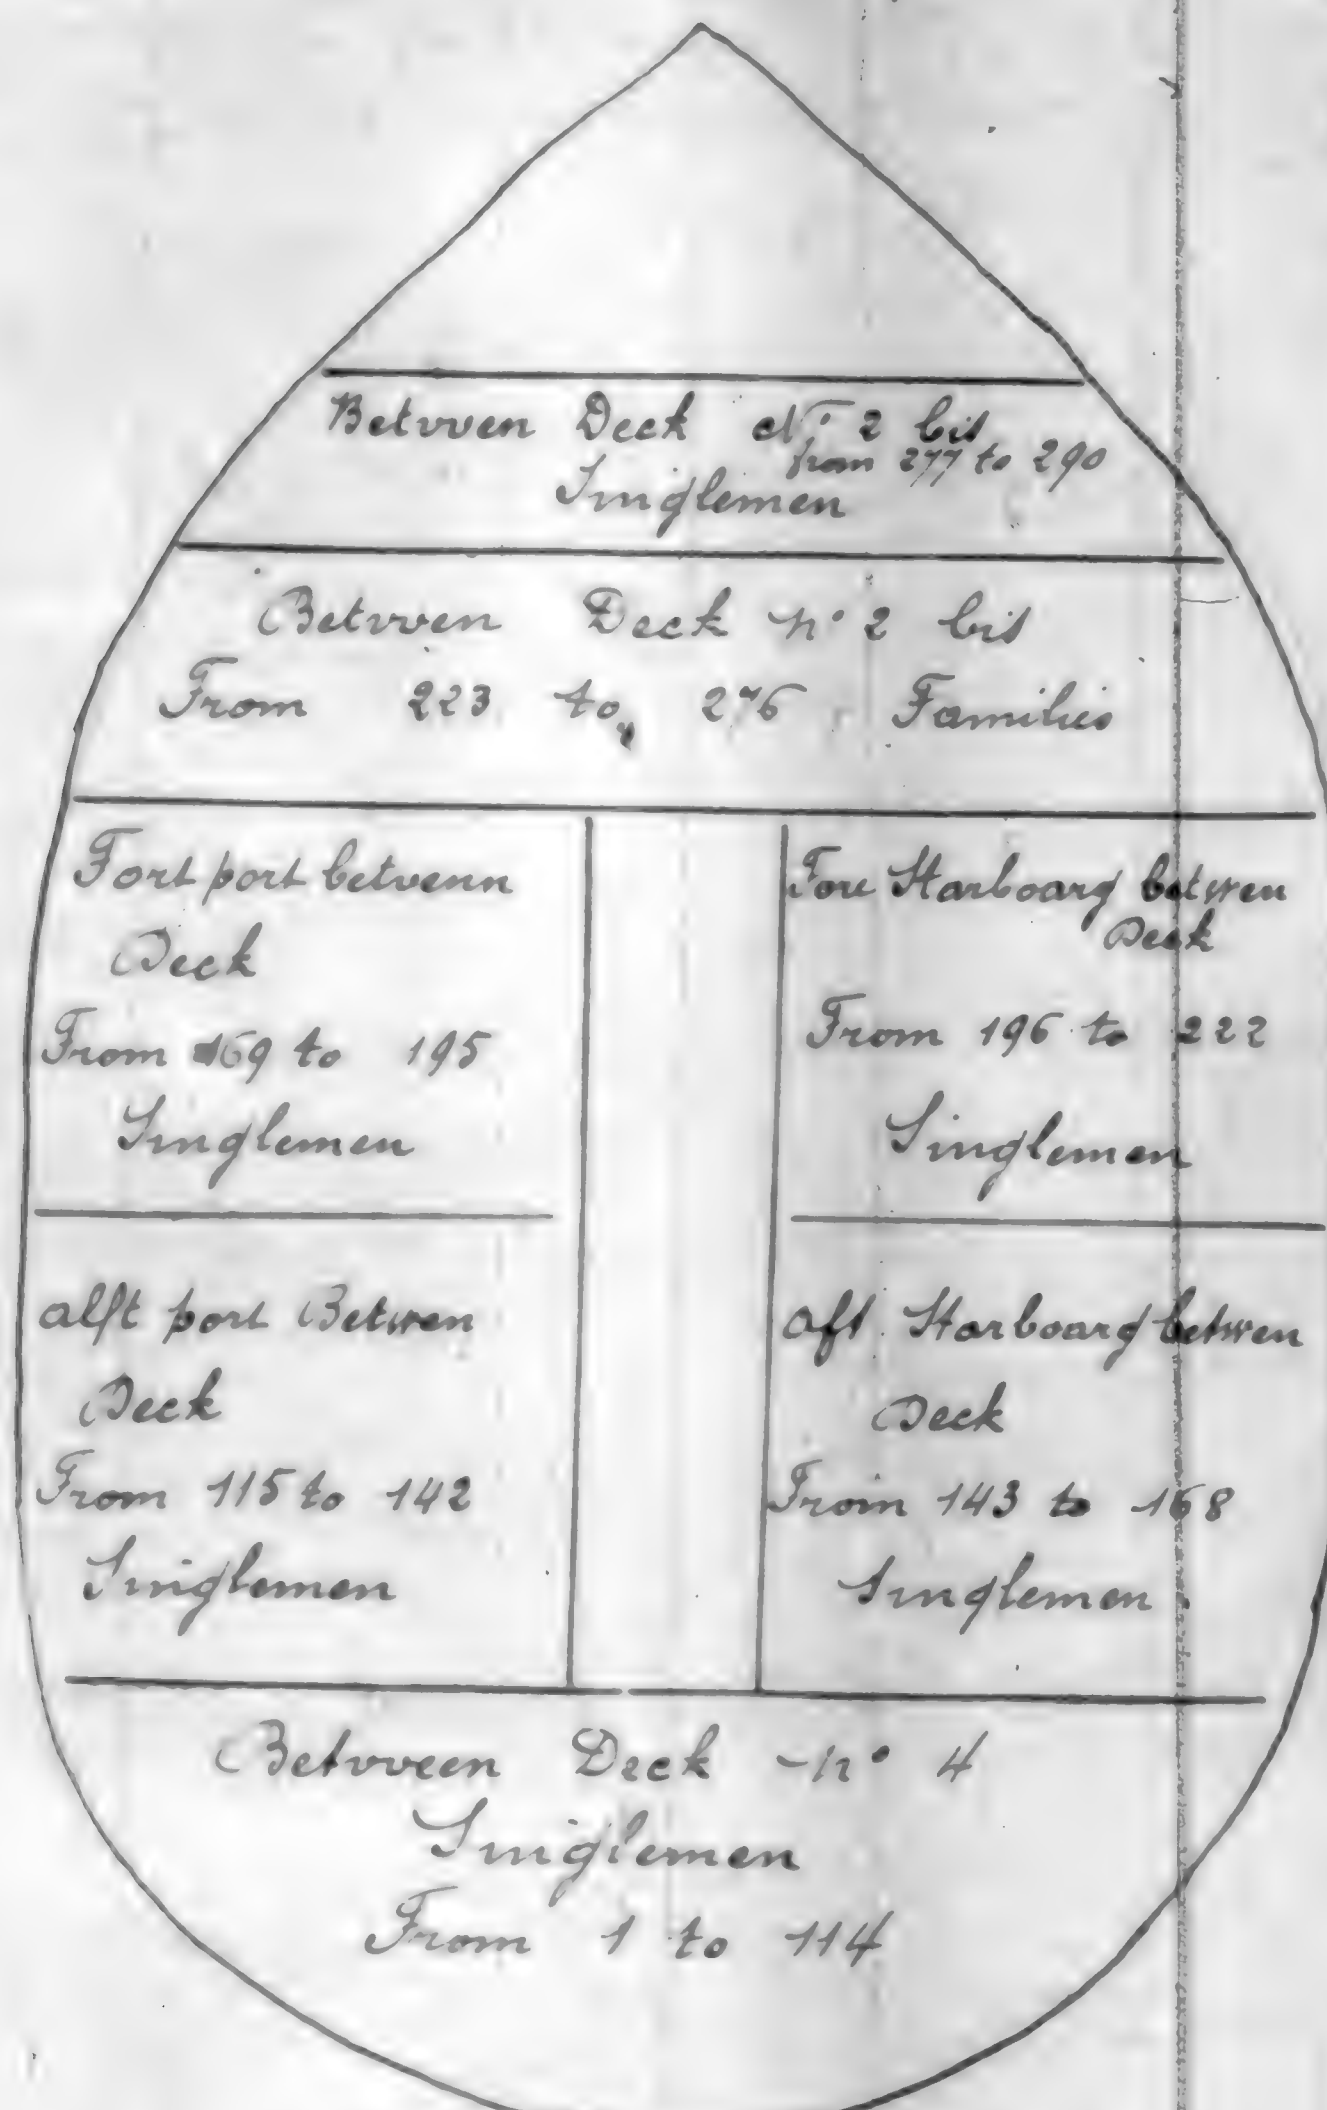 Betvven Deck N° 2 bis
from 277 to 290
Singlemen
Betvven Deck n° 2 bis
From 223 to 276 Families
Fort port betvenn
Deck
From 169 to 195
Singlemen
Fore Starboarg betwen
Deck
From 196 to 222
Singlemen
alft port Betwen
Deck
From 115 to 142
Singlemen
aft Starboarg betwen
Deck
From 143 to 168
Singlemen
Betvveen Deck n° 4
Singlemen
From 1 to 114